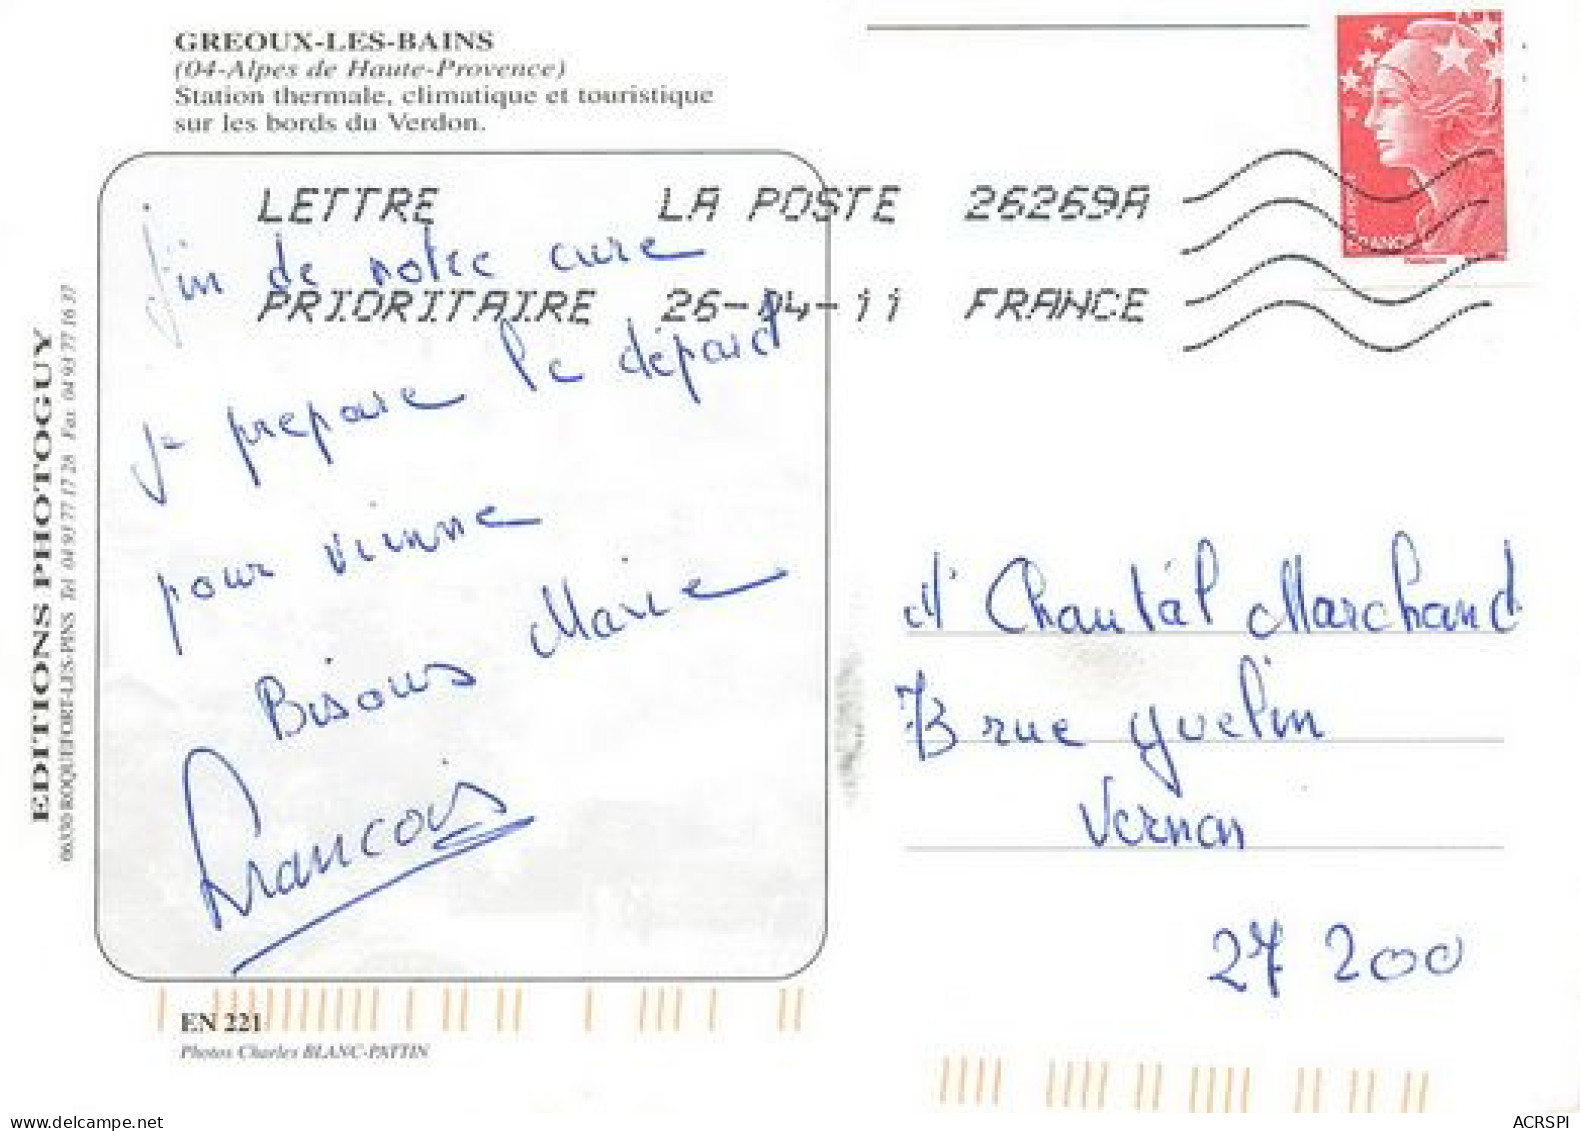 GREOUX-LES-BAINS
(04-Alpes de Haute-Provence)
Station thermale, climatique et touristique
sur les bords du Verdon.
LETTRE LA POSTE 26269A
PRIORITAIRE 26-04-11 FRANCE
FRANCE
fin de notre cure
je prepare le départ
pour vienne
Bisous Marie
Francois
M Chantal Marchand
73 rue yvelin
Vernon
27 200
EDITIONS PHOTOGUY
06330 ROQUEFORT-LES-PINS Tel 04 93 77 17 28 Fax 04 93 77 16 37
EN 221
Photos Charles BLANC-PATTIN
www.delcampe.net
ACRSPI